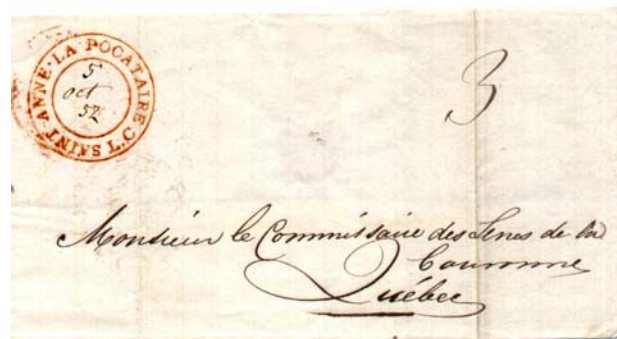 SAINT-ANNE-LA POCATAIRE L.C
5
oct
52
3
Monsieur le Commissaire des Terres de la
Couronne
Québec